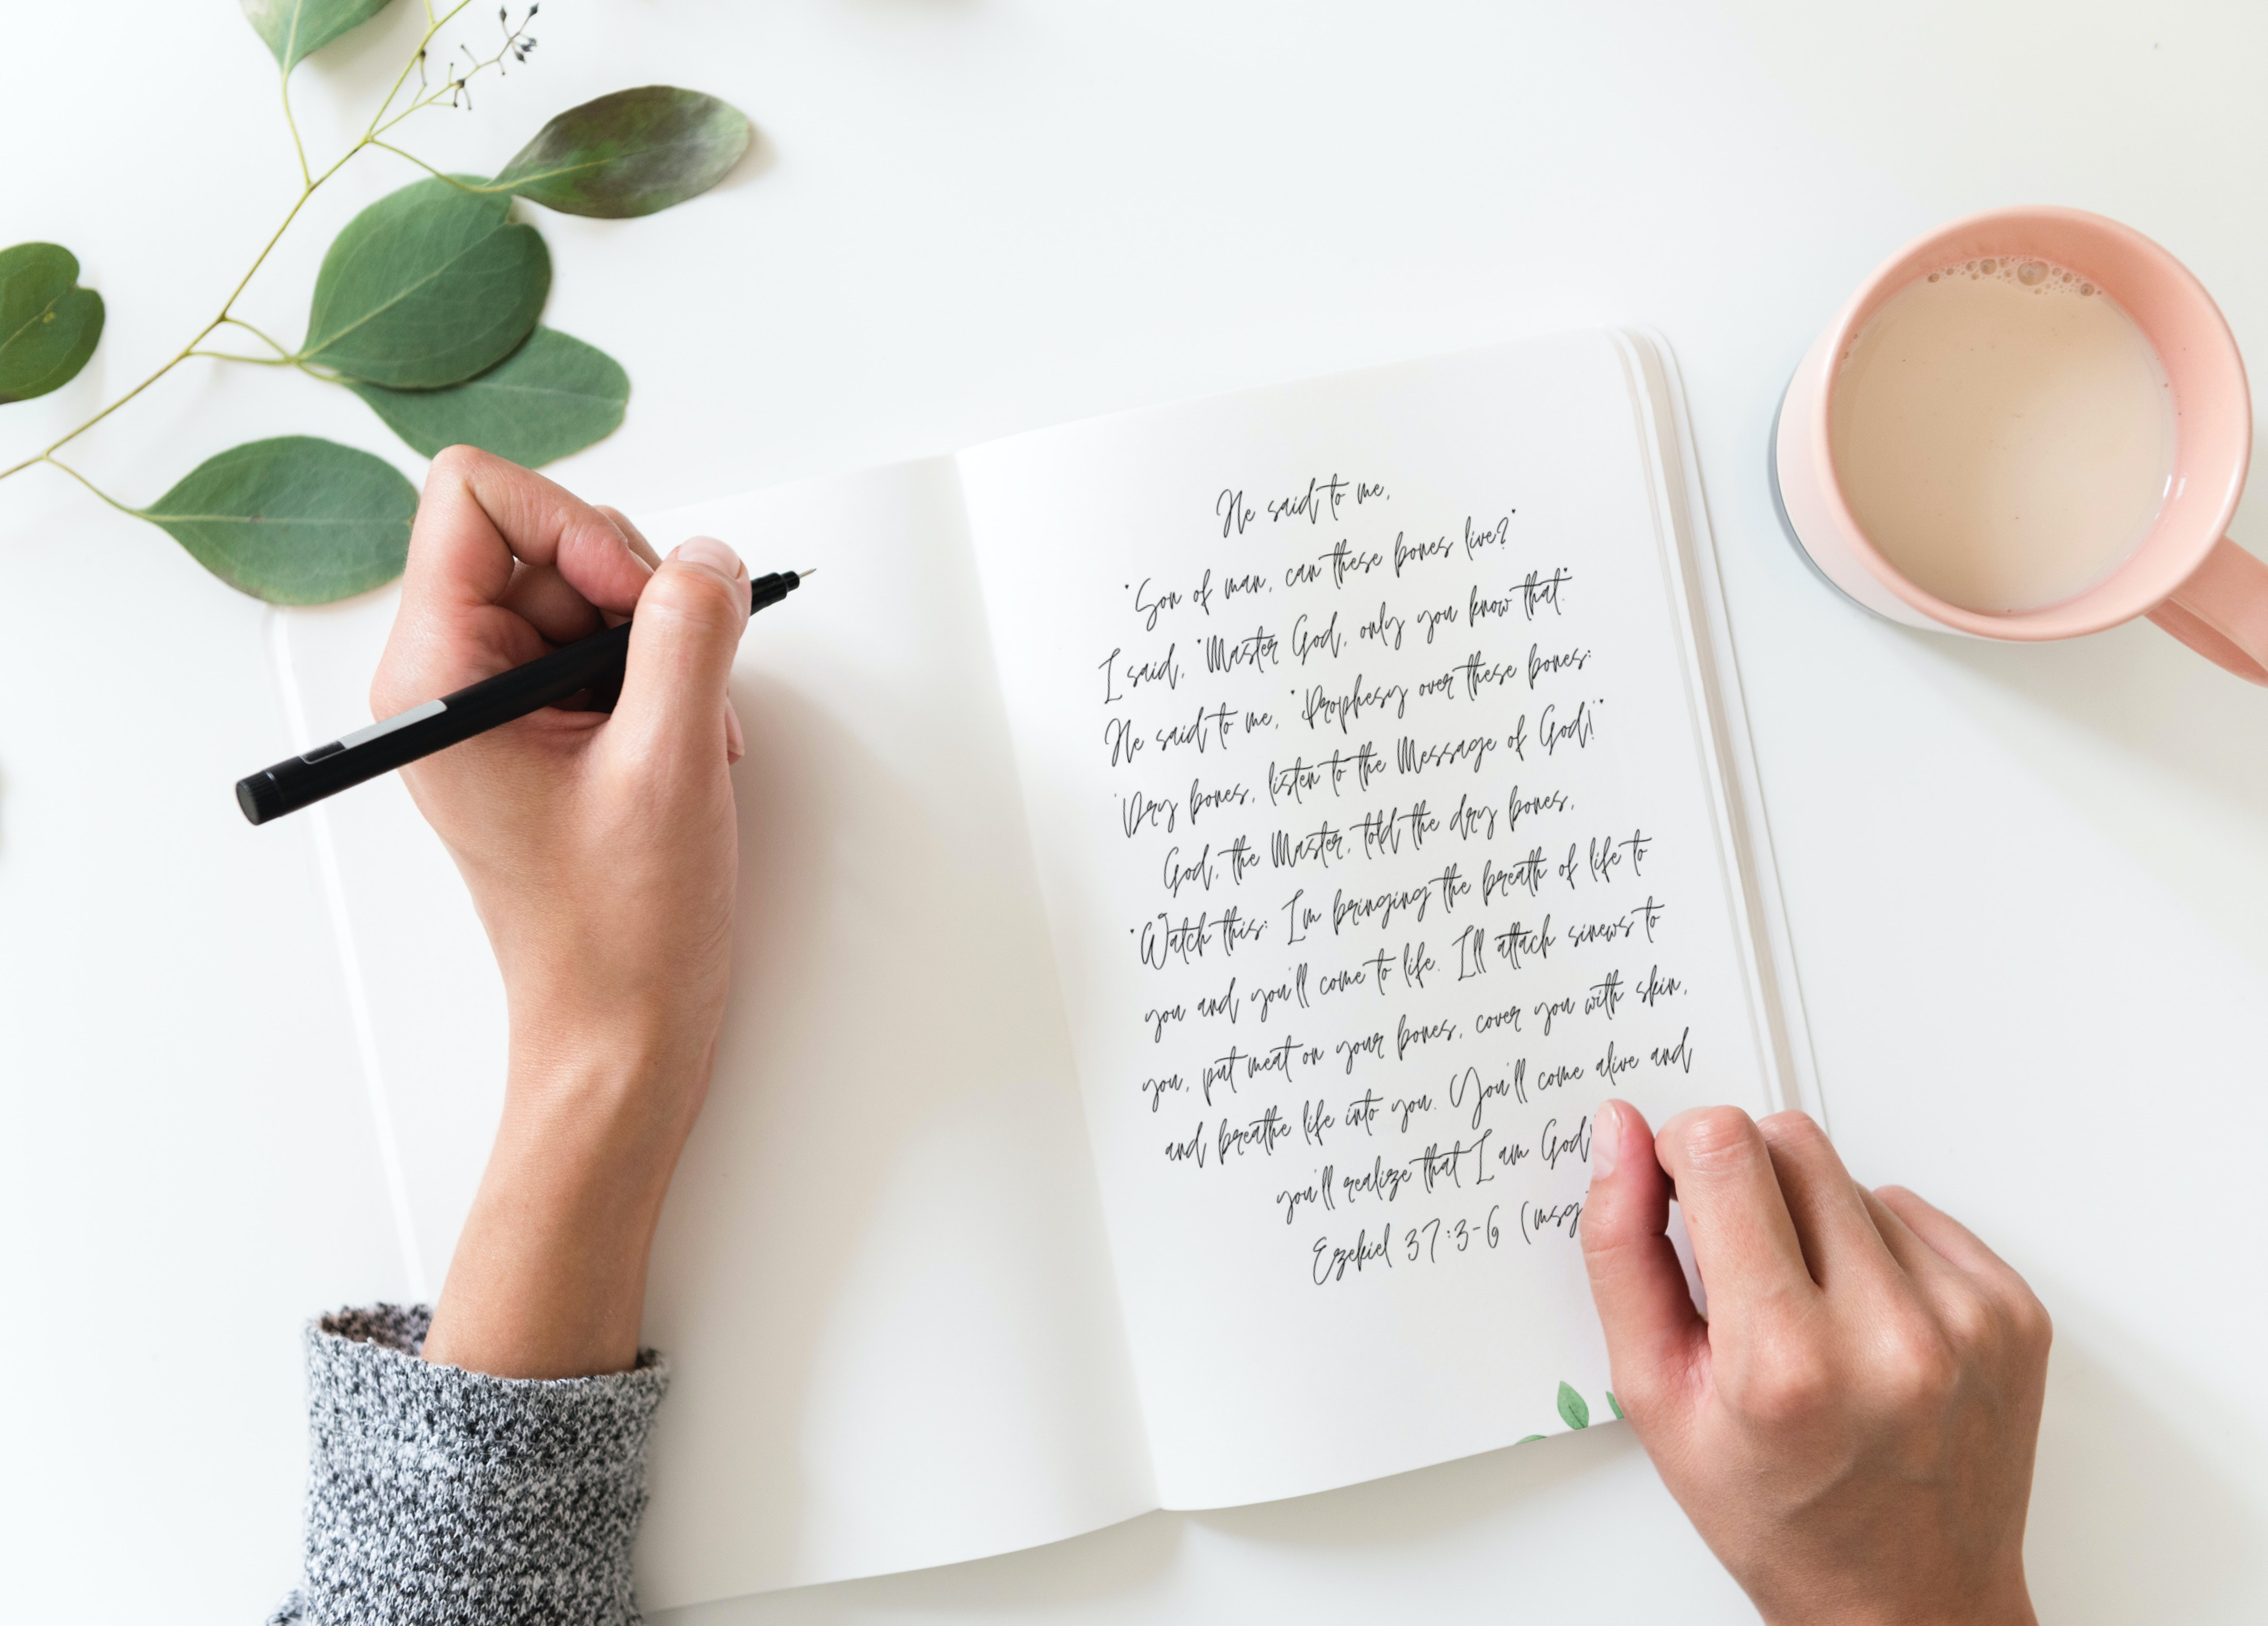 He said to me,
"Son of man, can these bones live?"
I said, "Master God, only you know that."
He said to me, "Prophesy over these bones:
'Dry bones, listen to the Message of God!'"
God, the Master, told the dry bones,
"Watch this: I'm bringing the breath of life to
you and you'll come to life. I'll attach sinews to
you, put meat on your bones, cover you with skin,
and breathe life into you. You'll come alive and
you'll realize that I am God!
Ezekiel 37:3-6 (msg